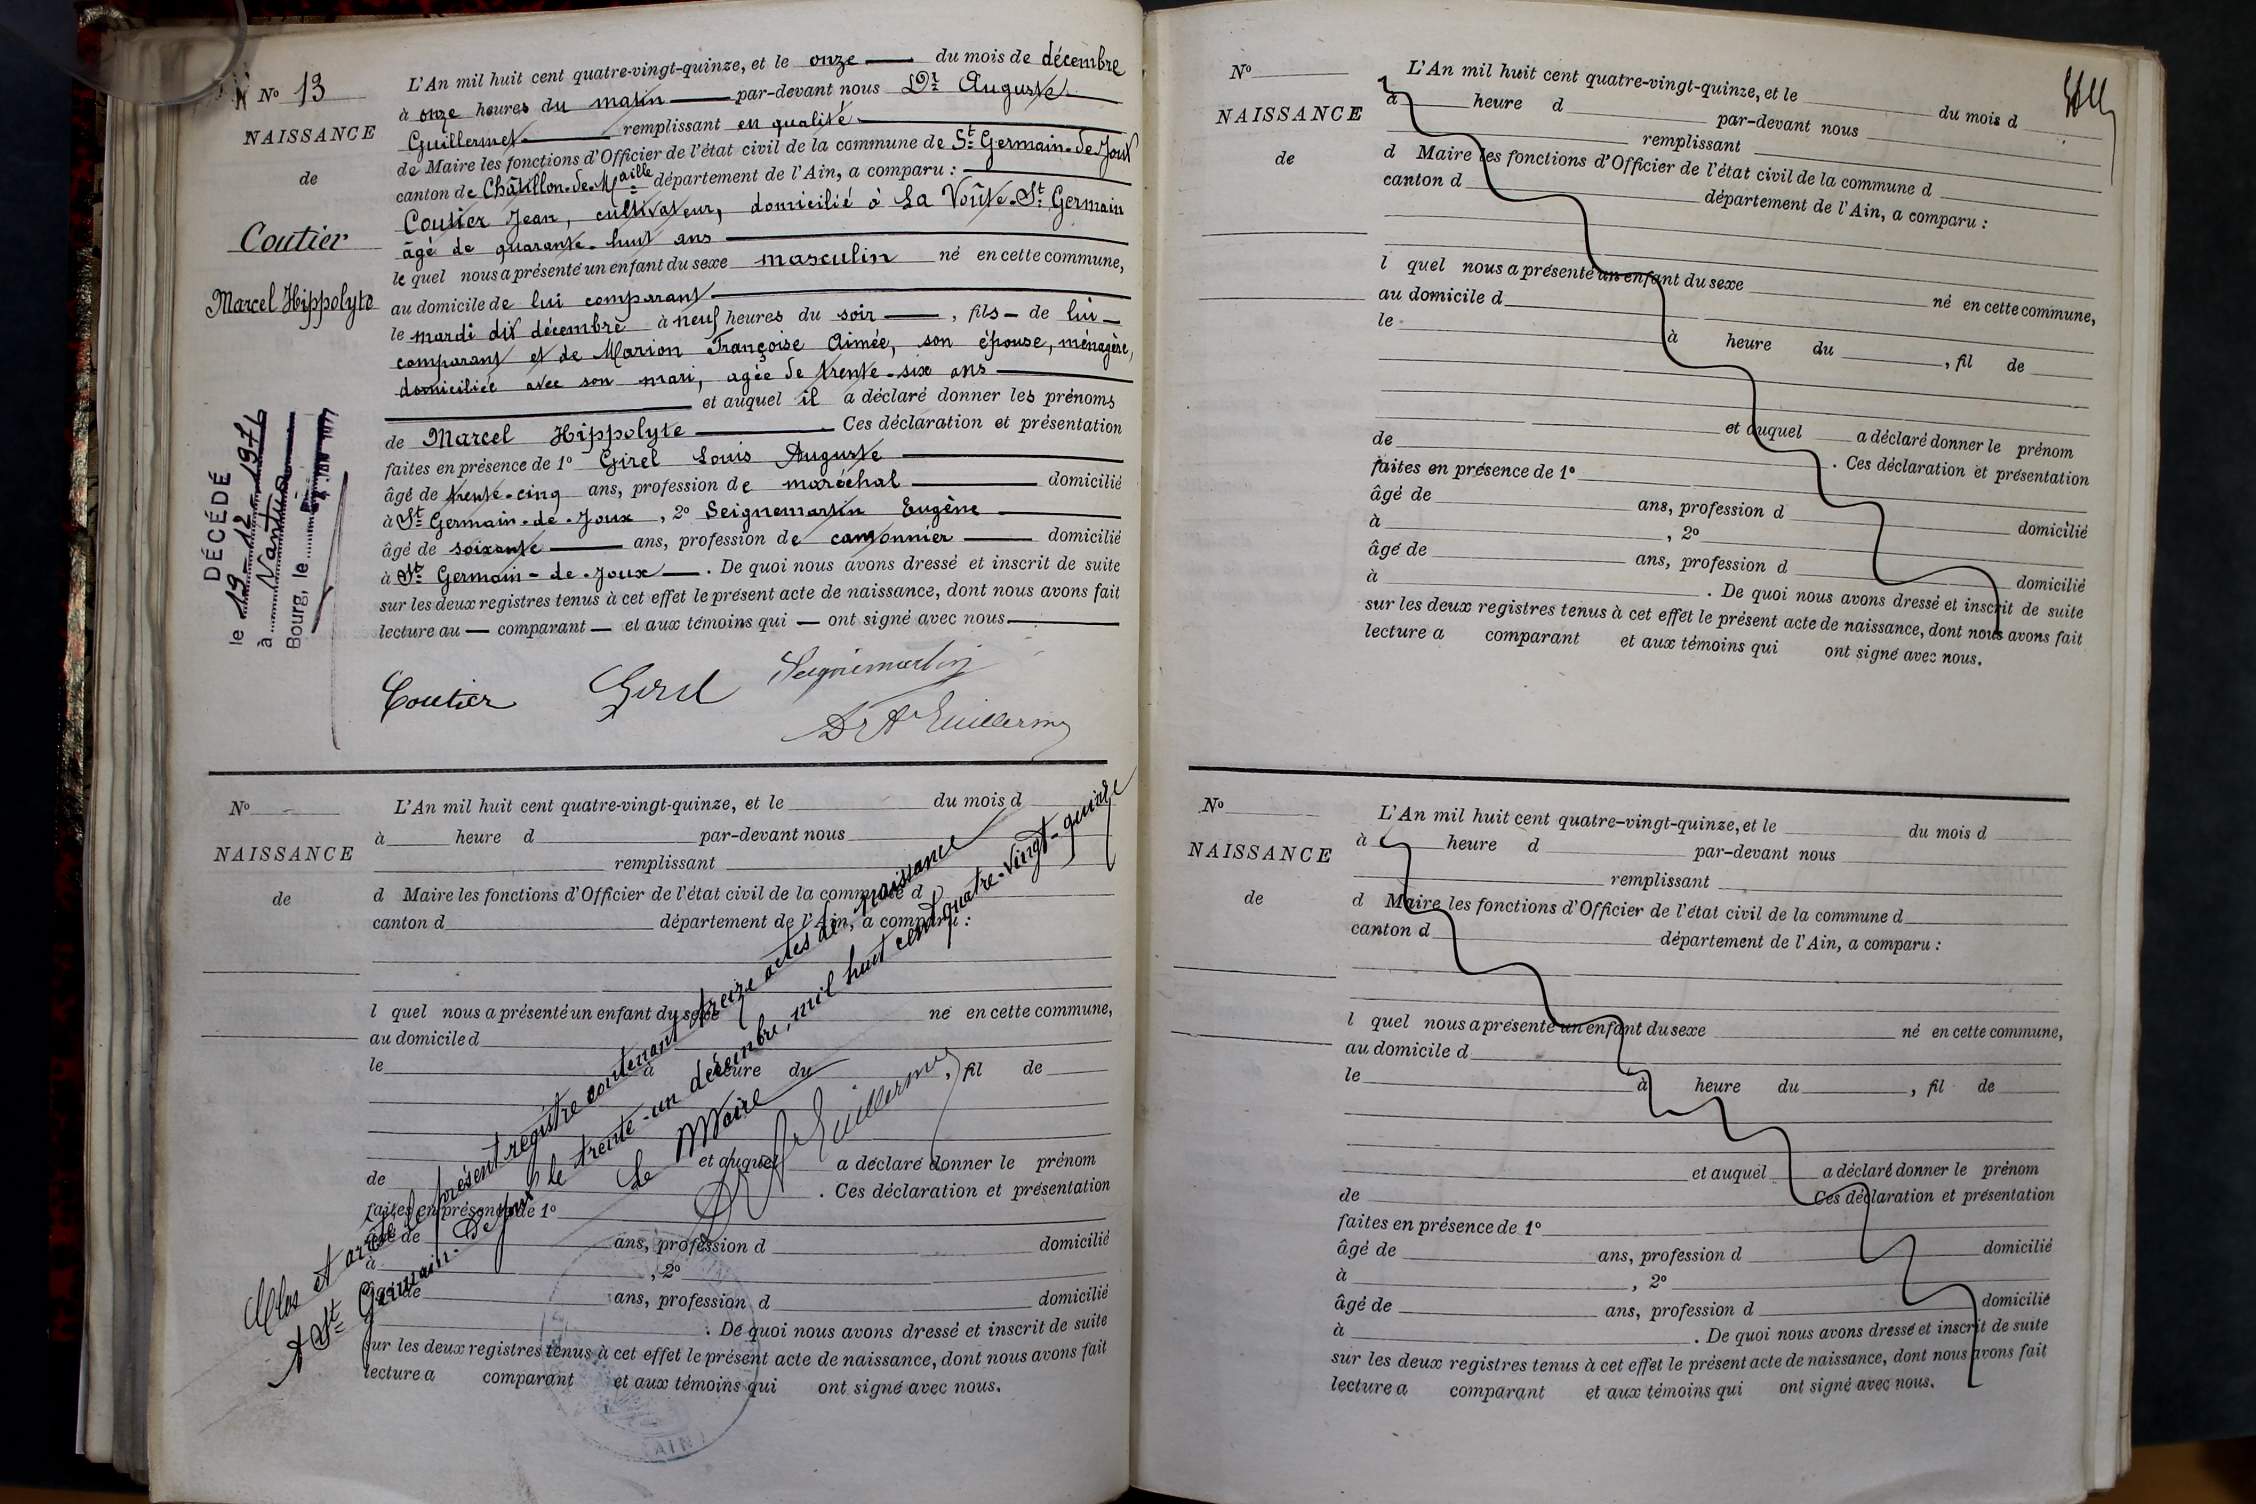 N° 13
NAISSANCE
de
Coutier
Marcel Hippolyte
L'An mil huit cent quatre-vingt-quinze, et le onze du mois de décembre
à onze heures du matin par-devant nous Dr Auguste
Guillermet remplissant en qualité
de Maire les fonctions d'Officier de l'état civil de la commune de St Germain-de-Joux
canton de Châtillon-de-Maille département de l'Ain, a comparu :
Coutier Jean, cultivateur, domicilié à La Voûte-St Germain
âgé de quarante-huit ans
le quel nous a présenté un enfant du sexe masculin né en cette commune,
au domicile de lui comparant
le mardi dix décembre à neuf heures du soir, fils de lui
comparant et de Marion Françoise Aimée, son épouse, ménagère,
domiciliée avec son mari, agée de trente-six ans
et auquel il a déclaré donner les prénoms
de Marcel Hippolyte. Ces déclaration et présentation
faites en présence de 1° Girel Louis Auguste
âgé de trente-cinq ans, profession de maréchal domicilié
à St Germain-de-Joux, 2° Seignemartin Eugène
âgé de soixante ans, profession de cantonnier domicilié
à St Germain-de-Joux. De quoi nous avons dressé et inscrit de suite
sur les deux registres tenus à cet effet le présent acte de naissance, dont nous avons fait
lecture au comparant et aux témoins qui ont signé avec nous.
Coutier Girel Seignemartin
Dr A Guillermet
DÉCÉDÉ
le 19-12-1976
à Nantua
Bourg, le JAN 1977
N°
NAISSANCE
de
L'An mil huit cent quatre-vingt-quinze, et le du mois d
à heure d par-devant nous
remplissant
d Maire les fonctions d'Officier de l'état civil de la commune d
canton d département de l'Ain, a comparu :
l quel nous a présenté un enfant du sexe né en cette commune,
au domicile d
le à heure du , fil de
et auquel a déclaré donner le prénom
de . Ces déclaration et présentation
faites en présence de 1°
âgé de ans, profession d domicilié
à , 2°
âgé de ans, profession d domicilié
à . De quoi nous avons dressé et inscrit de suite
sur les deux registres tenus à cet effet le présent acte de naissance, dont nous avons fait
lecture a comparant et aux témoins qui ont signé avec nous.
Clos et arrêté le présent registre contenant treize actes de naissance
A St Germain-de-Joux le trente-un décembre, mil huit cent quatre-vingt-quinze
Le Maire
Dr A Guillermet
AIN
N°
NAISSANCE
de
L'An mil huit cent quatre-vingt-quinze, et le du mois d
à heure d par-devant nous
remplissant
d Maire les fonctions d'Officier de l'état civil de la commune d
canton d département de l'Ain, a comparu :
l quel nous a présenté un enfant du sexe né en cette commune,
au domicile d
le à heure du , fil de
et auquel a déclaré donner le prénom
de . Ces déclaration et présentation
faites en présence de 1°
âgé de ans, profession d domicilié
à , 2°
âgé de ans, profession d domicilié
à . De quoi nous avons dressé et inscrit de suite
sur les deux registres tenus à cet effet le présent acte de naissance, dont nous avons fait
lecture a comparant et aux témoins qui ont signé avec nous.
N°
NAISSANCE
de
L'An mil huit cent quatre-vingt-quinze, et le du mois d
à heure d par-devant nous
remplissant
d Maire les fonctions d'Officier de l'état civil de la commune d
canton d département de l'Ain, a comparu :
l quel nous a présenté un enfant du sexe né en cette commune,
au domicile d
le à heure du , fil de
et auquel a déclaré donner le prénom
de Ces déclaration et présentation
faites en présence de 1°
âgé de ans, profession d domicilié
à , 2°
âgé de ans, profession d domicilié
à . De quoi nous avons dressé et inscrit de suite
sur les deux registres tenus à cet effet le présent acte de naissance, dont nous avons fait
lecture a comparant et aux témoins qui ont signé avec nous.